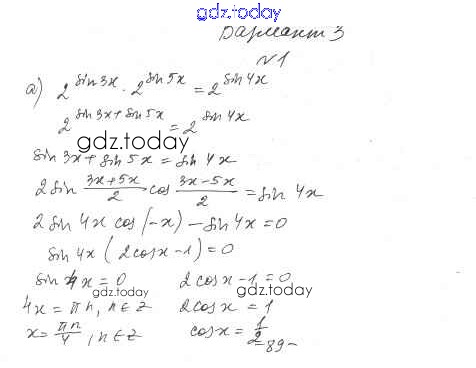 gdz.today
Вариант 3
N1
а) 2^{sin3x} · 2^{sin5x} = 2^{sin4x}
2^{sin3x+sin5x} = 2^{sin4x}
gdz.today
sin3x + sin5x = sin4x
2sin \frac{3x+5x}{2} cos \frac{3x-5x}{2} = sin4x
2sin4x cos(-x) - sin4x = 0
sin4x(2cosx-1) = 0
sin4x = 0 2cosx-1 = 0
gdz.today gdz.today
4x = πn, n∈Z 2cosx = 1
x = \frac{πn}{4}, n∈Z cosx = \frac{1}{2}
-89-